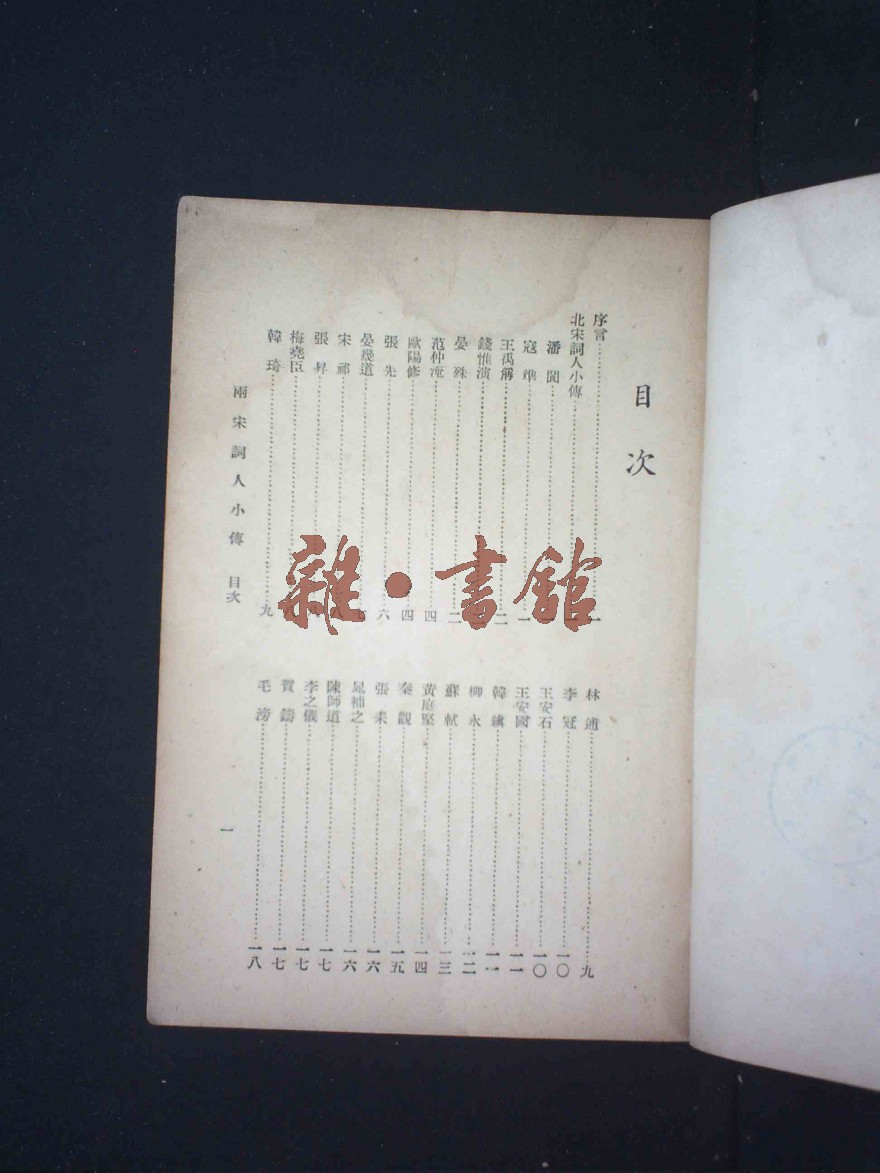 目次
序言……一
北宋詞人小傳
潘閬
寇準……一
王禹偁……二
錢惟演
晏殊……二
范仲淹……四
歐陽修……四
張先……六
晏幾道……七
宋祁
張昇
梅堯臣
韓琦……九
林逋……九
李冠……一〇
王安石……一〇
王安國……一一
韓縝……一一
柳永……一二
蘇軾……一三
黃庭堅……一四
秦觀……一五
張耒……一六
晁補之……一六
陳師道……一七
李之儀……一七
賀鑄……一七
毛滂……一八
兩宋詞人小傳 目次
一
雜·書館